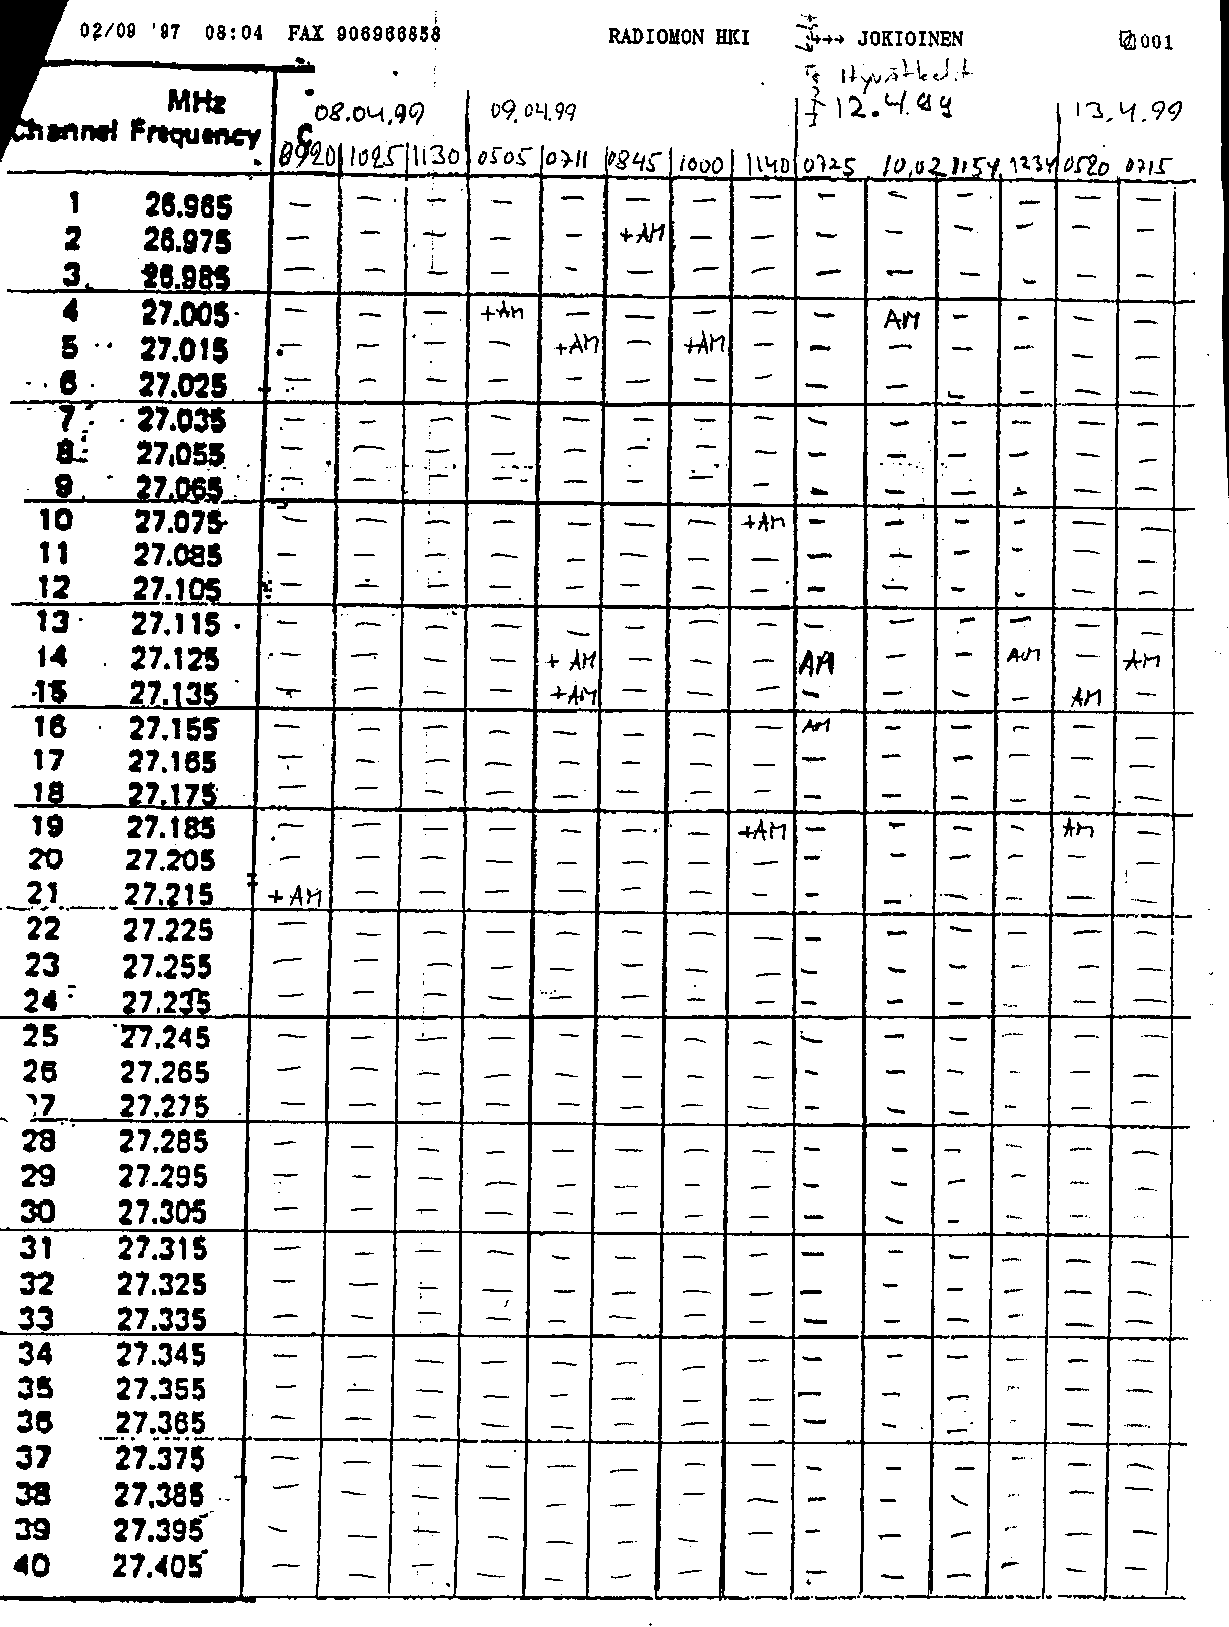 02/09 '97 08:04 FAX 906966858 RADIOMON HKI →→→ JOKIOINEN 001
MHz
Channel Frequency
08.04.99 09.04.99 12.4.99 13.4.99
0920 1025 1130 0505 0711 0845 1000 1140 0725 10.02 1154 1234 0520 0715
1 26.965 — — — — — — — — — — — — — —
2 26.975 — — — — — +AM — — — — — — — —
3 26.985 — — — — — — — — — — — — — —
4 27.005 — — — +AM — — — — — AM — — — —
5 27.015 — — — — +AM — +AM — — — — — — —
6 27.025 — — — — — — — — — — — — — —
7 27.035 — — — — — — — — — — — — — —
8 27.055 — — — — — — — — — — — — — —
9 27.065 — — — — — — — — — — — — — —
10 27.075 — — — — — — — +AM — — — — — —
11 27.085 — — — — — — — — — — — — — —
12 27.105 — — — — — — — — — — — — — —
13 27.115 — — — — — — — — — — — — — —
14 27.125 — — — — + AM — — — AM — — AM — AM
15 27.135 — — — — +AM — — — — — — — AM —
16 27.155 — — — — — — — — AM — — — — —
17 27.165 — — — — — — — — — — — — — —
18 27.175 — — — — — — — — — — — — — —
19 27.185 — — — — — — — +AM — — — — AM —
20 27.205 — — — — — — — — — — — — — —
21 27.215 + AM — — — — — — — — — — — — —
22 27.225 — — — — — — — — — — — — — —
23 27.255 — — — — — — — — — — — — — —
24 27.235 — — — — — — — — — — — — — —
25 27.245 — — — — — — — — — — — — — —
26 27.265 — — — — — — — — — — — — — —
27 27.275 — — — — — — — — — — — — — —
28 27.285 — — — — — — — — — — — — — —
29 27.295 — — — — — — — — — — — — — —
30 27.305 — — — — — — — — — — — — — —
31 27.315 — — — — — — — — — — — — — —
32 27.325 — — — — — — — — — — — — — —
33 27.335 — — — — — — — — — — — — — —
34 27.345 — — — — — — — — — — — — — —
35 27.355 — — — — — — — — — — — — — —
36 27.365 — — — — — — — — — — — — — —
37 27.375 — — — — — — — — — — — — — —
38 27.385 — — — — — — — — — — — — — —
39 27.395 — — — — — — — — — — — — — —
40 27.405 — — — — — — — — — — — — — —